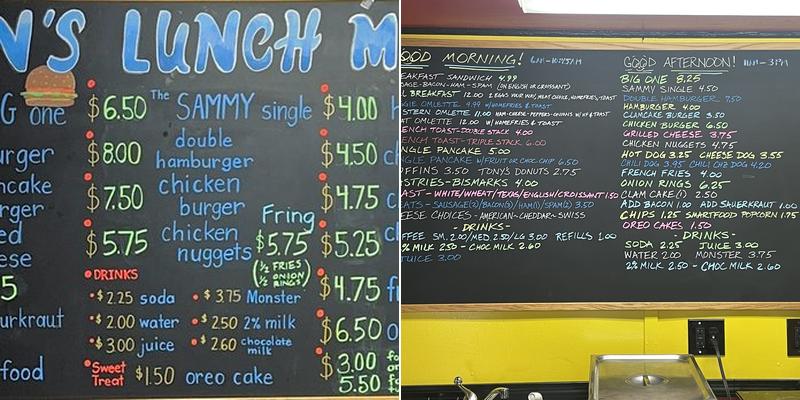 N'S LUNCH M
G one $6.50 The SAMMY single $4.00
urger $8.00 double hamburger $4.50
ncake rger $7.50 chicken burger $4.75
ed ese $5.75 chicken nuggets Fring $5.75 $5.25
(½ FRIES ½ ONION RINGS)
5 DRINKS $4.75
urkraut • $2.25 soda • $3.75 Monster
• $2.00 water • $2.50 2% milk $6.50
• $3.00 juice • $2.60 chocolate milk
food Sweet Treat $1.50 oreo cake $3.00
5.50
OOD MORNING! 6AM-10:45AM
EAKFAST SANDWICH 4.99
SAGE-BACON-HAM-SPAM (ON ENGLISH OR CROISSANT)
L BREAKFAST 12.00 2 EGGS YOUR WAY, MEAT CHOICE, HOMEFRIES, TOAST
GIE OMLETTE 9.99 W/HOMEFRIES & TOAST
STERN OMLETTE 11.00 HAM-CHEESE-PEPPERS-ONIONS W/HF & TOAST
T OMLETTE 12.00 W/HOMEFRIES & TOAST
ENCH TOAST-DOUBLE STACK 4.00
ENCH TOAST-TRIPLE STACK 6.00
NGLE PANCAKE 5.00
GLE PANCAKE W/FRUIT OR CHOC CHIP 6.50
FFINS 3.50 TONY'S DONUTS 2.75
STRIES-BISMARKS 4.00
AST-WHITE/WHEAT/TEXAS/ENGLISH/CROISSANT 1.50
EATS-SAUSAGE(2)/BACON(3)/HAM(1)/SPAM(2) 3.50
EESE CHOICES-AMERICAN-CHEDDAR-SWISS
-DRINKS-
FFEE SM. 2.00/MED 2.50/LG 3.00 REFILLS 1.00
% MILK 2.50-CHOC MILK 2.60
JUICE 3.00
GOOD AFTERNOON! 11AM-3PM
BIG ONE 8.25
SAMMY SINGLE 4.50
DOUBLE HAMBURGER 7.50
HAMBURGER 4.00
CLAMCAKE BURGER 3.50
CHICKEN BURGER 6.50
GRILLED CHEESE 3.75
CHICKEN NUGGETS 4.75
HOT DOG 3.25 CHEESE DOG 3.55
CHILI DOG 3.95 CHILI CHZ DOG 4.20
FRENCH FRIES 4.00
ONION RINGS 6.25
CLAM CAKE(1) 2.50
ADD BACON 1.00 ADD SAUERKRAUT 1.00
CHIPS 1.25 SMARTFOOD POPCORN 1.75
OREO CAKES 1.50
-DRINKS-
SODA 2.25 JUICE 3.00
WATER 2.00 MONSTER 3.75
2% MILK 2.50-CHOC MILK 2.60